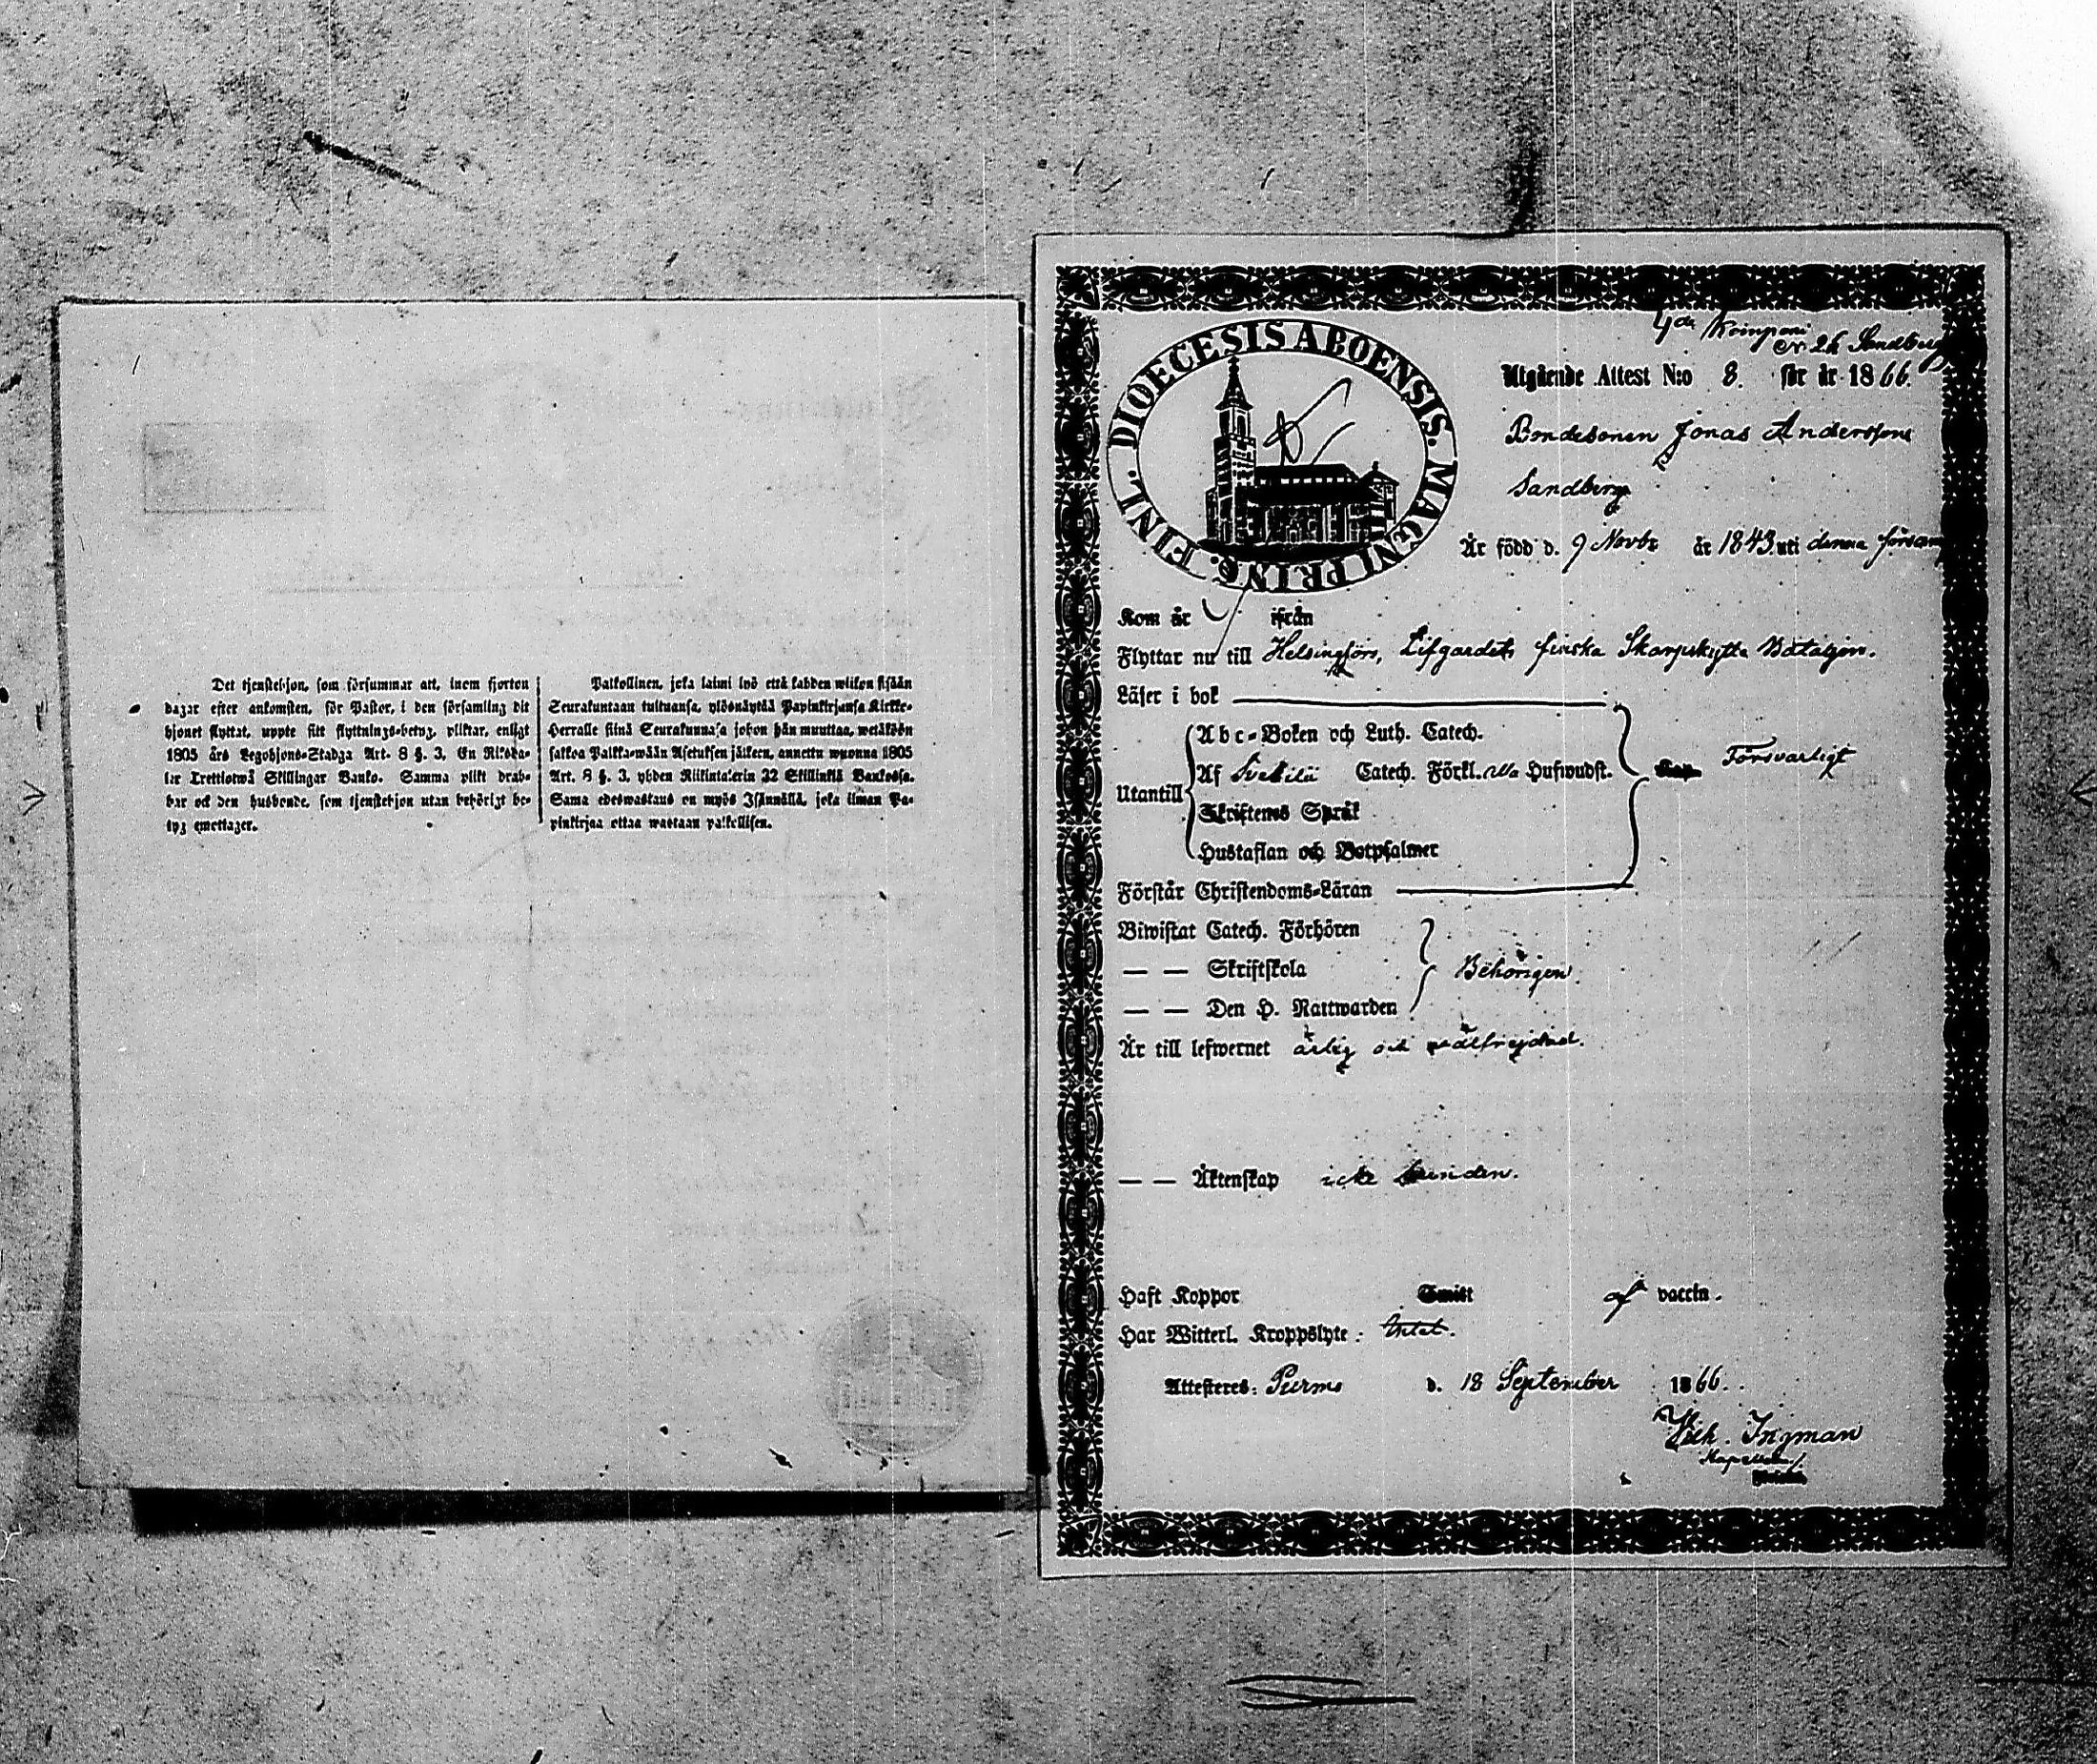 Det tjenstehjon, som försummar att, inom fjorton
dagar efter ankomsten, för Pastor, i den församling dit
hjonet flyttat, uppte sitt flyttnings-betyg, pliktar, enligt
1805 års Legohjons-Stadga Art. 8 §. 3, En Riksda-
ler Trettiotwå Skillingar Banko. Samma plikt drab-
bar ock den husbonde, som tjenstehjon utan behörigt be-
tyg emottager.
Palkollinen, joka laimi lyö että kahden wiikon sisään
Seurakuntaan tultuansa, ylösnäyttää Papinkirjansa Kirkko-
Herralle siinä Seurakunnasa johon hän muuttaa, wetäköön
sakkoa Palkka-wään Asetuksen jälken, annettu wuonna 1805
Art. 8 §. 3, yhden Riikintalerin 32 Skillinkiä Bankossa.
Sama edeswastaus on myös Isännällä, joka ilman Pa-
pinkirjaa ottaa wastaan palkollisen.
4de Kompani
No 26 Sandberg
FINL. DIOECESIS ABOENSIS. MAGNI PRINC.
Utgående Attest N:o 8. för år 1866.
Bondesonen Jonas Andersson
Sandberg
Är född d. 9 Novbr år 1843 uti denna församl
Kom år ifrån
Flyttar nu till Helsingfors, Lifgardets finska Skarpskytte Bataljon.
Läser i bok
Abc-Boken och Luth. Catech.
Af Svebilii Catech. Förkl. Hufwudst.
Försvarligt
Utantill
Skriftenes Språk
Hustaflan och Botpsalmer
Förstår Christendoms-Läran
Biwistat Catech. Förhören
— — Skriftskola
Behörigen.
— — Den H. Nattwarden
Är till lefwernet ärlig och välfrejdad.
— — Äktenskap icke bunden.
Haft Koppor Smitt af vaccin.
Har Witterl. Kroppslyte: Intet.
Attesteres: Purmo d. 18 September 1866.
Wilh. Ingman
Kapellan